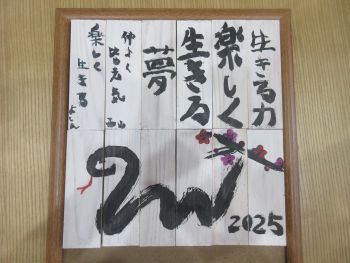 生きる力
楽しく
生きる
夢
仲よく
皆元気
西山
楽しく
生きる
2025